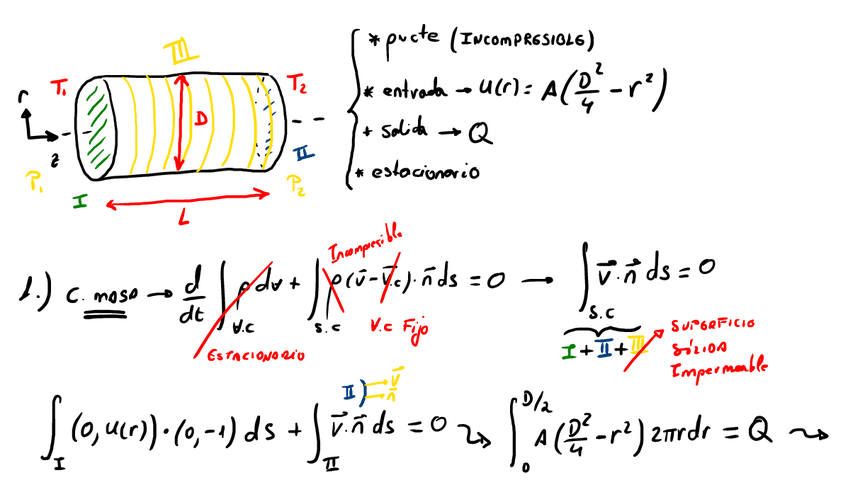 III
T₁
T₂
r
D
z
II
P₁
P₂
I
L
* ρ≡cte (INCOMPRESIBLE)
* entrada → u(r) = A(D²/4 - r²)
+ salida → Q
* estacionario
1.) C. masa → d/dt ∫_{V.C} ρ dV + ∫_{S.C} ρ(v⃗ - v⃗.c)·n⃗ ds = 0 → ∫_{S.C} v⃗·n⃗ ds = 0
Incompresible
ESTACIONARIO
V.C Fijo
I + II + III
SUPERFICIO
SÓLIDA
Impermeable
II) → v⃗
→ n⃗
∫_I (0, u(r))·(0, -1) ds + ∫_II v⃗·n⃗ ds = 0 ⇝ ∫₀^{D/2} A(D²/4 - r²) 2πr dr = Q ⇝